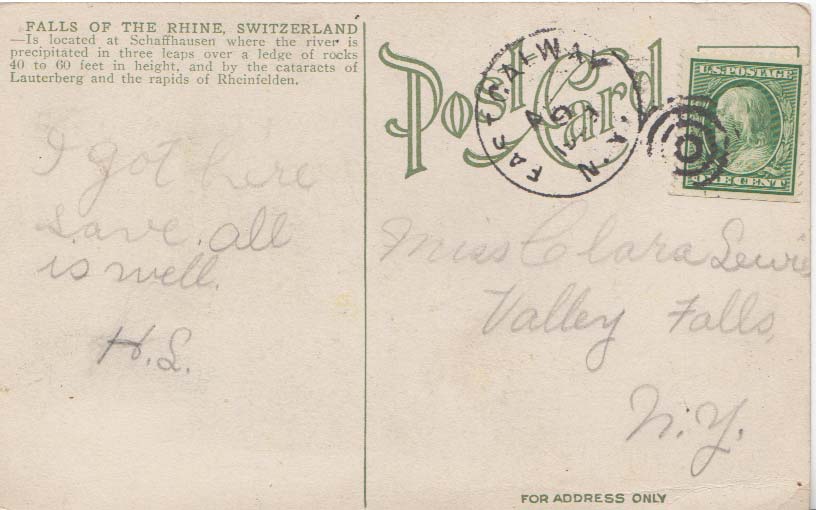 FALLS OF THE RHINE, SWITZERLAND
—Is located at Schaffhausen where the river is
precipitated in three leaps over a ledge of rocks
40 to 60 feet in height, and by the cataracts of
Lauterberg and the rapids of Rheinfelden.
I got here
save. all
is well.
H.L.
Post Card
N.Y.
U.S. POSTAGE
ONE CENT
Miss Clara Lewis
Valley Falls,
N.Y.
FOR ADDRESS ONLY